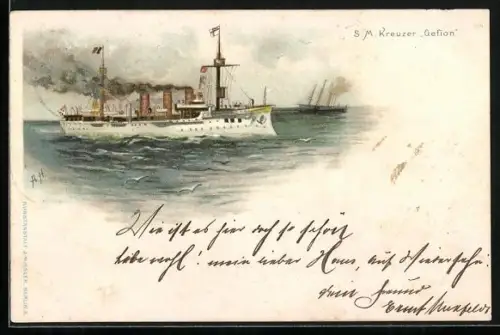 S. M. Kreuzer „Gefion"
Wie ist es hier doch so schön
lebe wohl! mein lieber Hans, auf Wiedersehn.
dein Freund
Ernst